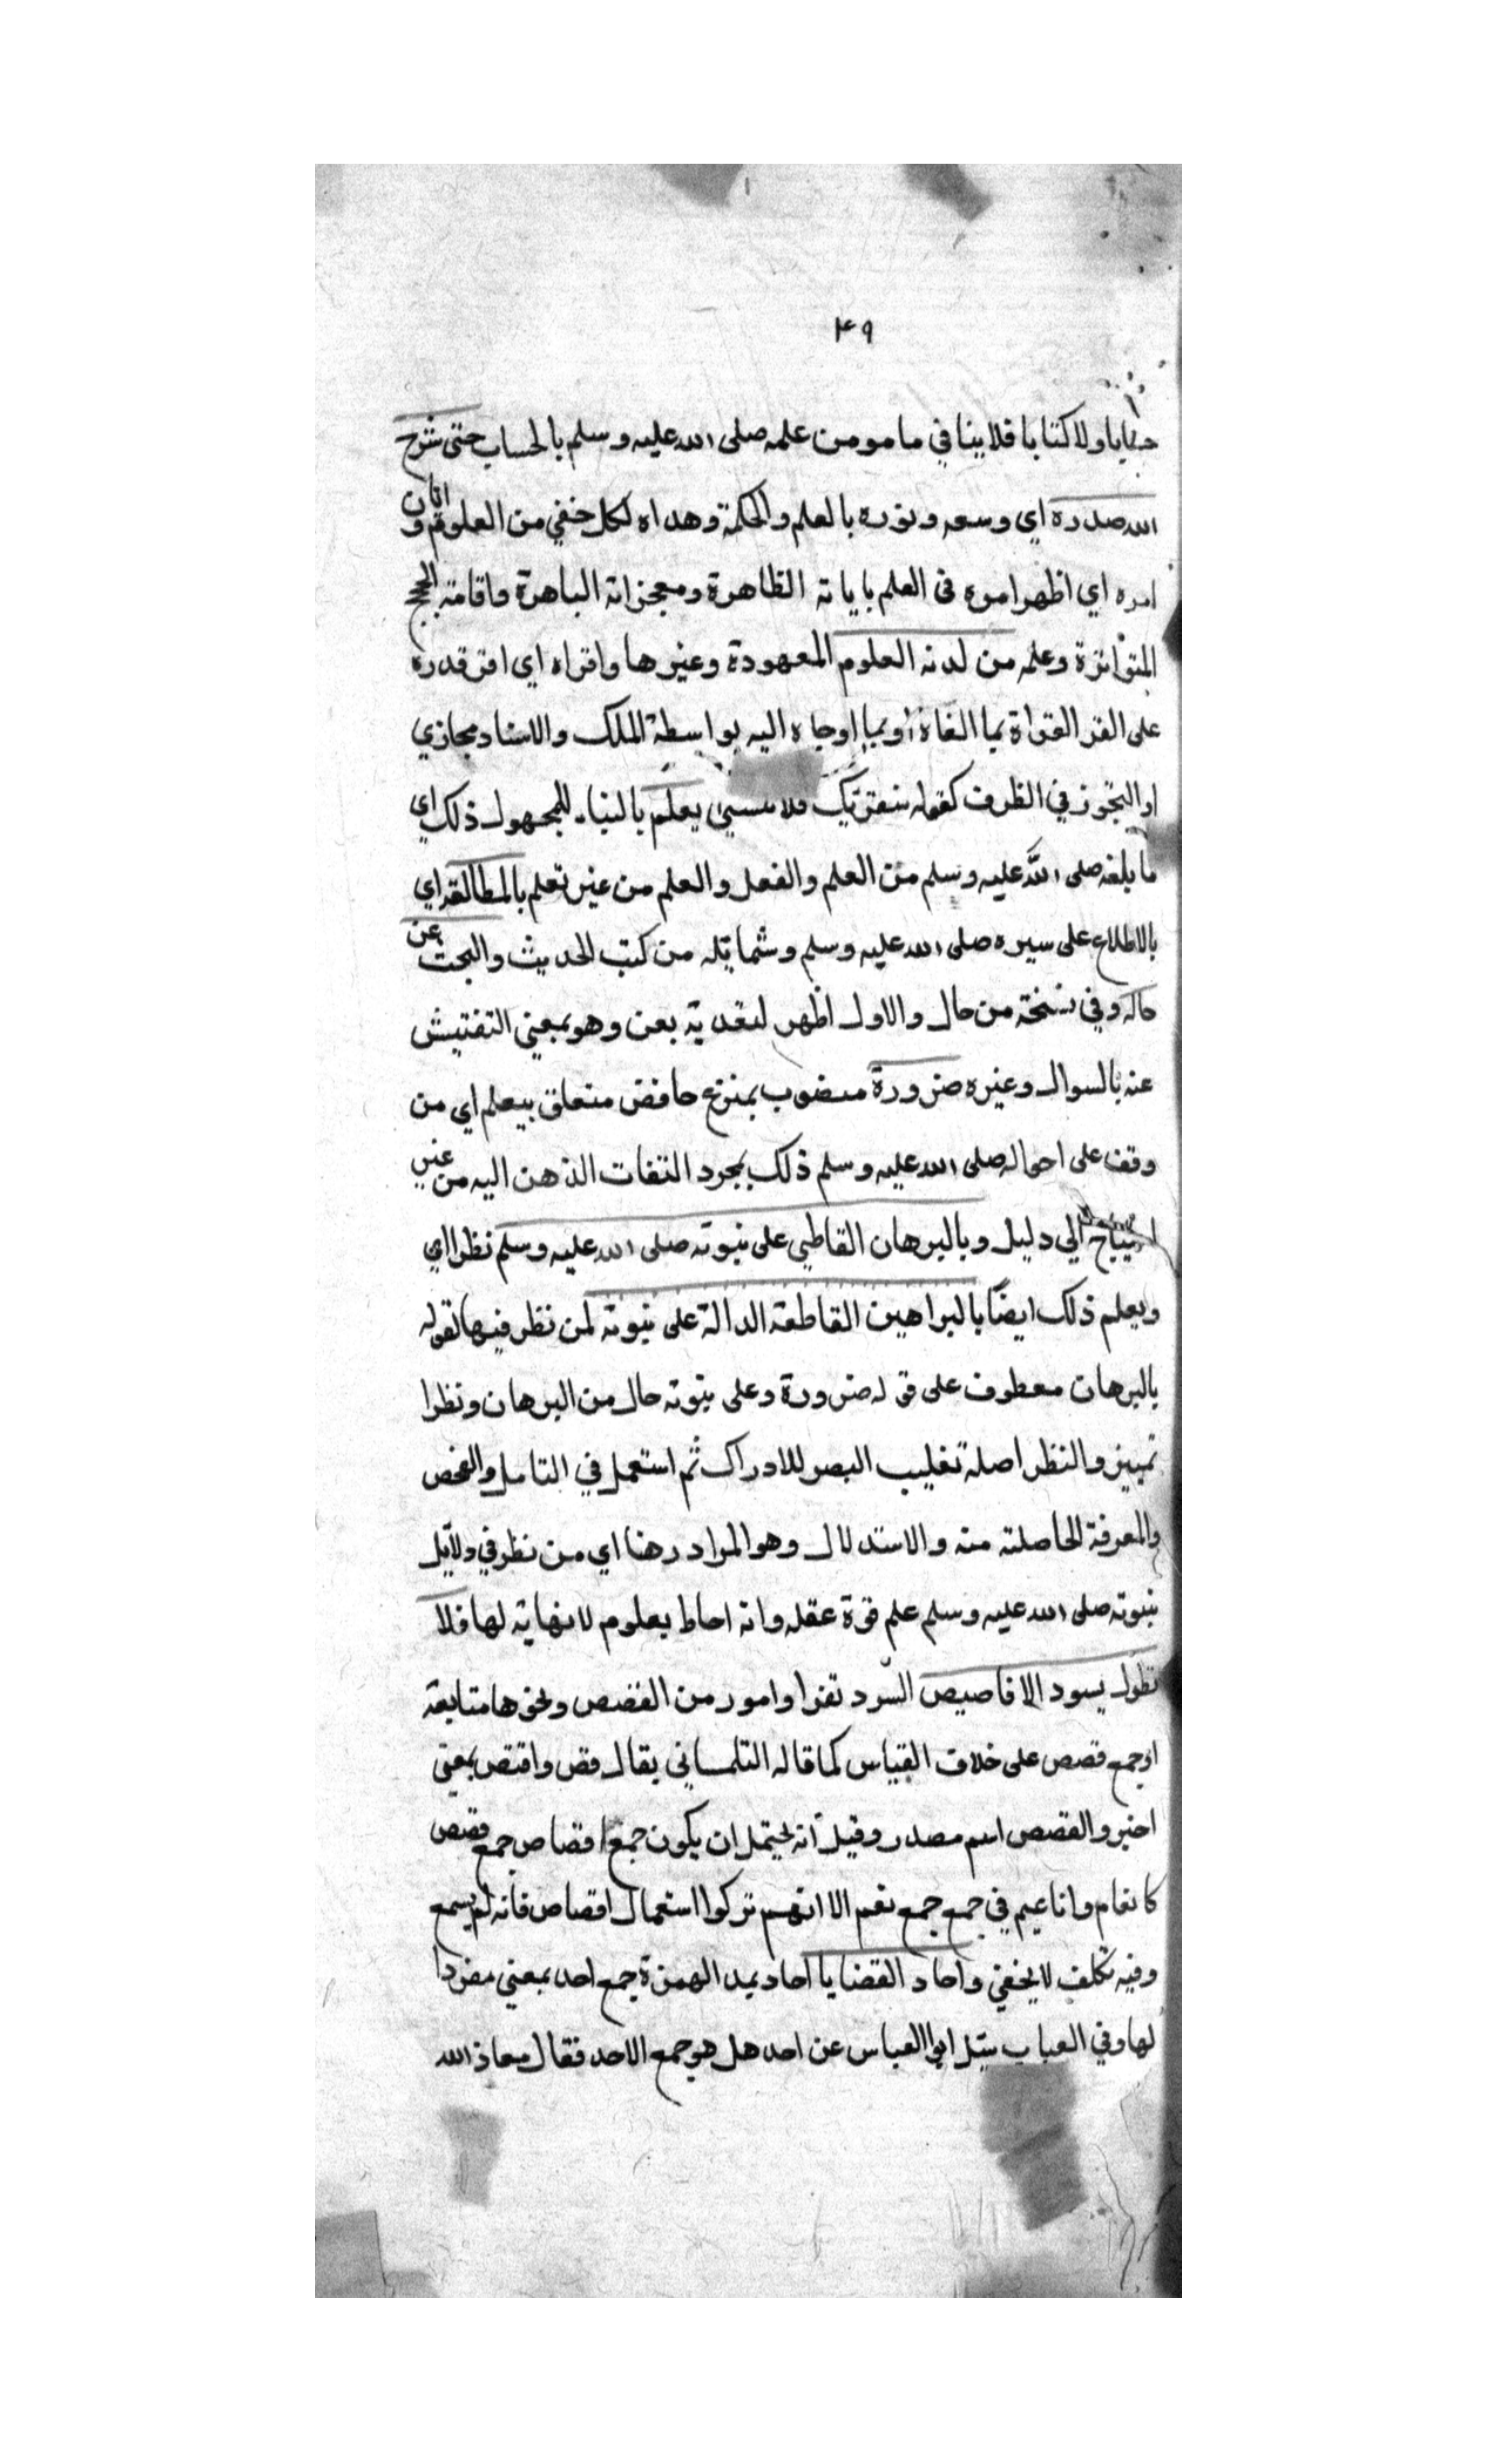 ٤٩
حسابا ولا كتابا فلا ينافي ما مو من علمه صلى الله عليه وسلم بالحساب حتى شرح
الله صدره اي وسعه ونوره بالعلم والحكمة وهداه لكل خفي من العلوم وابان
امره اي اظهر اموره في العلم باياته الظاهرة ومعجزاته الباهرة واقامته الحجج
المتواترة وعلمه من لدنه العلوم المعهودة وغيرها واقراه اي اقدره
على القراة بما القاه او بما اوحاه اليه بواسطة الملك والاسناد مجازي
او التجوز في الظرف كقوله سنقريك فلا تنسى يعلم بالبناء للمجهول ذلك اي
ما بلغه صلى الله عليه وسلم من العلم والفعل والعلم من غير تعلم بالمطالعة اي
بالاطلاع على سيره صلى الله عليه وسلم وشمايله من كتب الحديث والبحث عن
حاله وفي نسخة من حال والاول اظهر لتعديته بعن وهو بمعني التفتيش
عنه بالسوال وغيره ضرورة منصوب بمنزع خافض متعلق بيعلم اي من
وقف على احواله صلى الله عليه وسلم ذلك بمجرد التفات الذهن اليه من غير
احتياج الي دليل وبالبرهان القاطي على نبوته صلى الله عليه وسلم نظرا اي
ويعلم ذلك ايضا بالبراهين القاطعة الدالة على نبوته لمن نظر فيها لقوله
بالبرهان معطوف على قوله ضرورة وعلى نبوته حال من البرهان ونظرا
تمييز والنظر اصله تغليب البصر للادراك ثم استعمل في التامل والفحص
والمعرفة الحاصلته منه والاستدلال وهو المراد رهنا اي من نظر في دلايل
نبوته صلى الله عليه وسلم علم قوة عقله وانه احاط بعلوم لانهاية لها فلا
نطول بسرد الاقاصيص السرد نفرا وامور من القصص ونحوها متابعة
او جمع قصص على خلاف القياس كما قاله التلمساني يقال قص واقتص بمعنى
اخبر والقصص اسم مصدر وقيل انه يحتمل ان يكون جمع اقصاص جمع قصص
كانعام واناعيم في جمع جمع نعم الا انهم تركوا استعمال اقصاص فانه لم يسمع
وفيه تكلف لا يخفي واحاد القضايا احاد بمد الهمزة جمع احد بمعني مفردا
لها وفي العباب سيل ابوا العباس عن احد هل هو جمع الاحد فقال معاذ الله